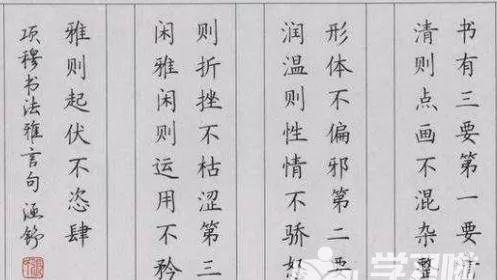 书有三要第一要
清则点画不混杂整
形体不偏邪第二要
润温则性情不骄
则折挫不枯涩第三
闲雅闲则运用不矜
雅则起伏不恣肆
项穆书法雅言句
学习啦